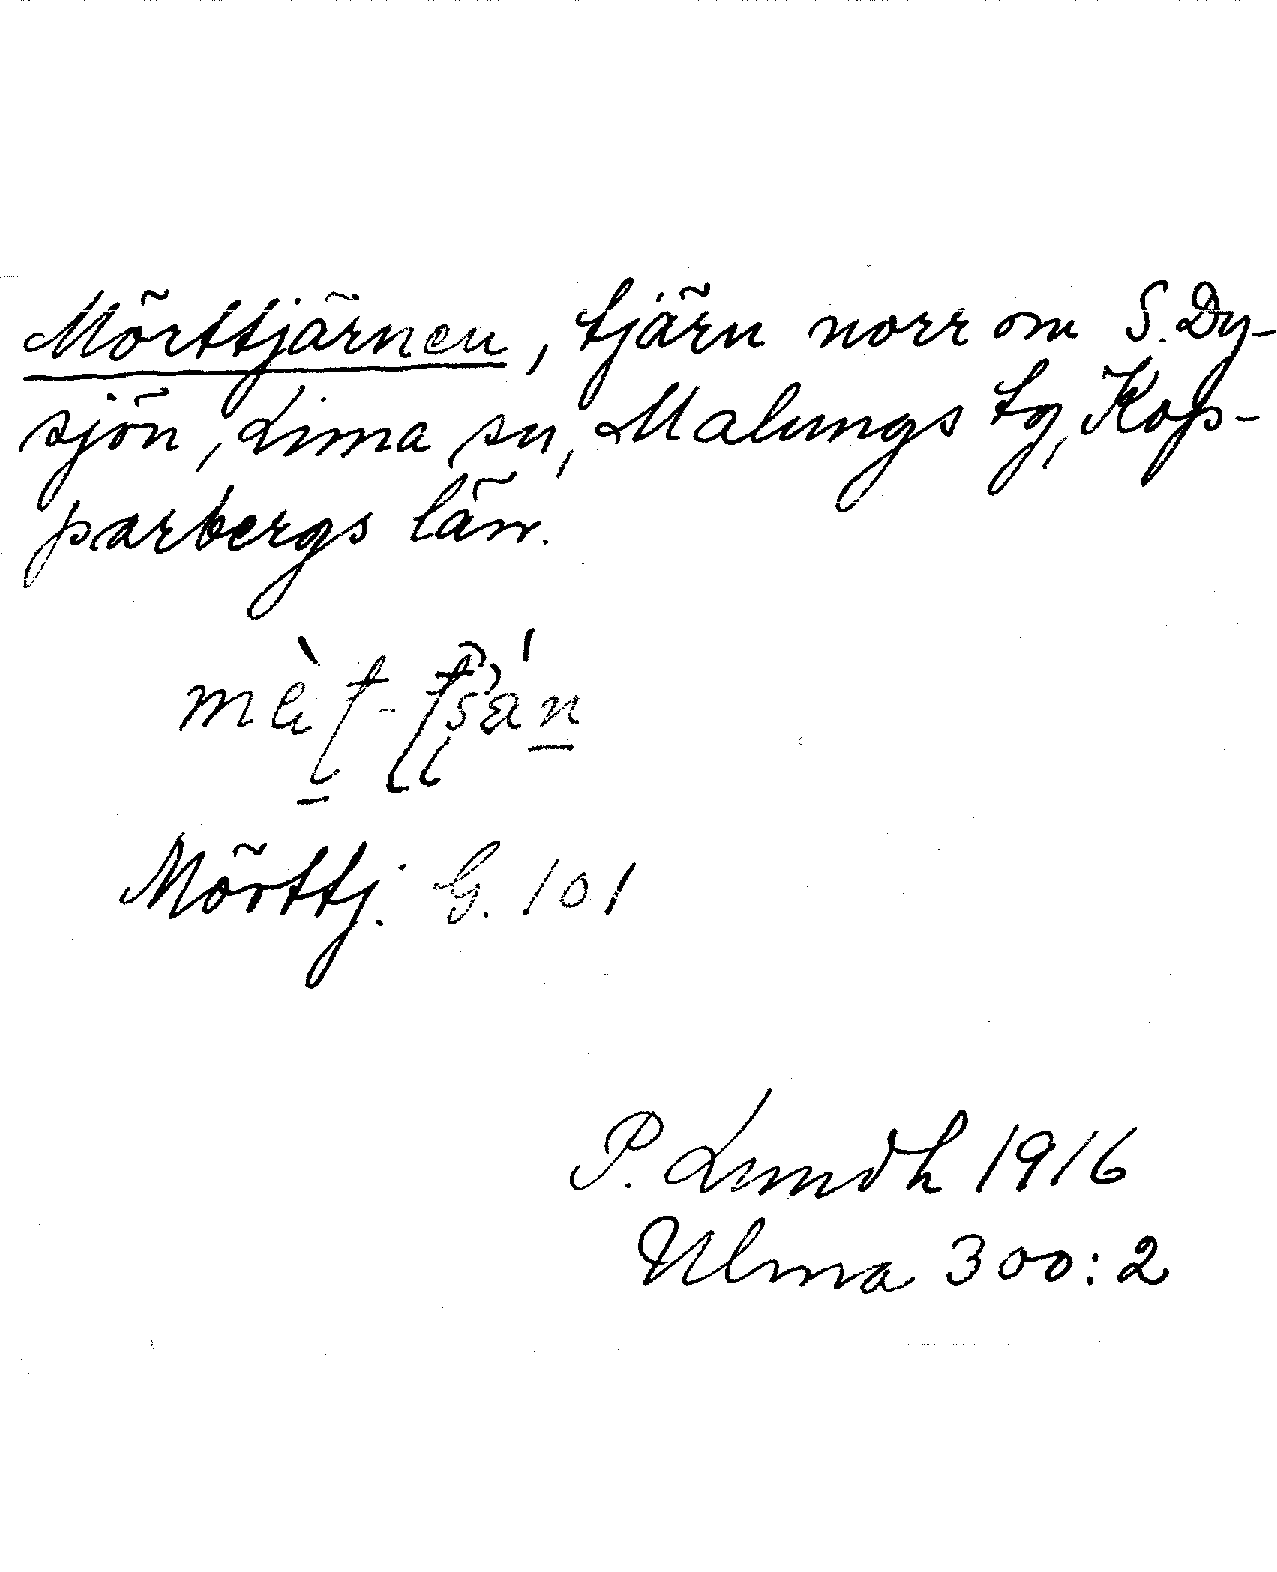 Mörttjärnen, tjärn norr om S. Dy-
sjön, Lima sn, Malungs tg, Kop-
parbergs län.
Mörttj. G. 101
P. Lundh 1916
Ulma 300:2